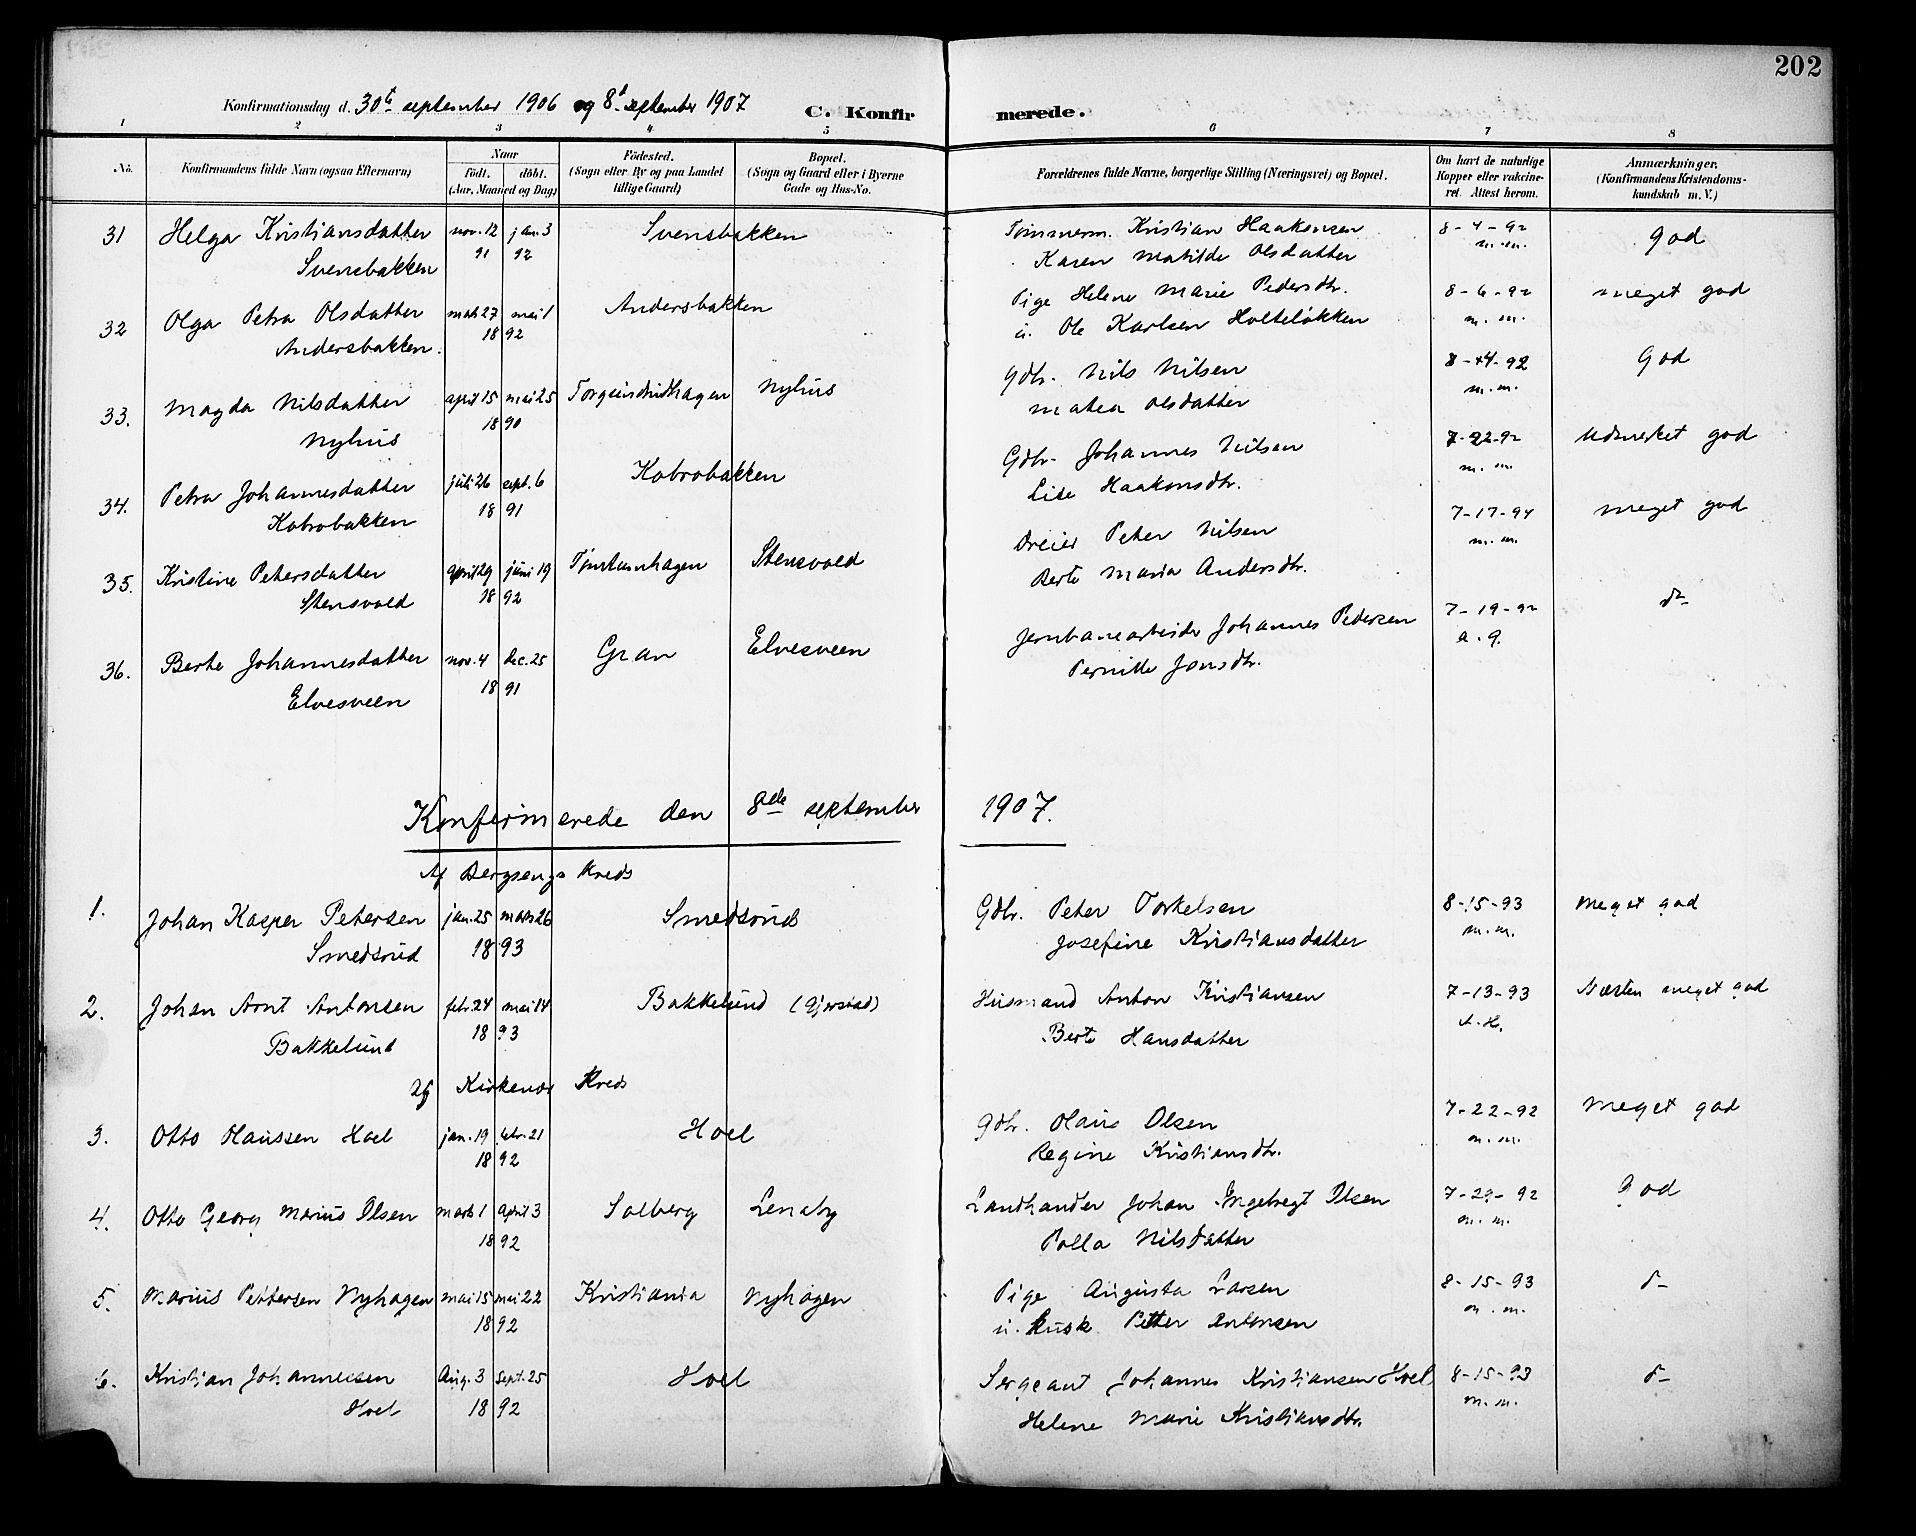 202
Konfirmationsdag d. 30te september 1906 og 8d september 1907 C. Konfirmerede.
1 2 3 4 5 6 7 8
No. Konfirmandens fulde Navn (ogsaa Efternavn) Naar födt. döbt. (Aar, Maaned og Dag) Födested. (Sogn eller By og paa Landet tillige Gaard) Bopæl. (Sogn og Gaard eller i Byerne Gade og Hus-No. Forældrenes fulde Navne, borgerlige Stilling (Næringsvei) og Bopæl. Om havt de naturlige Kopper eller vakcineret. Attest herom. Anmærkninger. (Konfirmandens Kristendomskundskab m. V.)
31 Helga Kristiansdatter nov. 12 jan. 3 Svensbakken Tømmerm. Kristian Haakensen 8-4-92 God
Svensbakken 91 92 Karen Matilde Olsdatter m.m.
32 Olga Petra Olsdatter marts 27 mai 1 Andersbakken Pige Helene Marie Pedersdtr. 8-6-92 meget god
Andersbakken. 18 92 u. Ole Karlsen Holteløkken m.m.
33. Magda Nilsdatter april 15 mai 25 Nyhus Gdbr. Nils Nilsen 8-4-92 God
Nyhus 18 90 Matea Olsdatter m.m.
34. Petra Johannesdatter juli 26 sept. 6 Kobrobakken Gdbr. Johannes Nilsen 7-22-92 Udmerket god
Kobrobakken 18 91 Lise Haakonsdtr. m.m.
35. Kristine Petersdatter april 29 juni 19 Stensvold Dreier Peter Nilsen 7-17-94 meget god
Stensvold 18 92 Berte Maria Andersdtr. m.m.
36. Berte Johannesdatter nov. 4 dec. 25 Gran Elvesveen Jernbanearbeider Johannes Pedersen 7-19-92 do
Elvesveen 18 91 Pernille Jonsdtr. a.g.
Konfirmerede den 8de september 1907.
Af Bergsengs Kreds
1. Johan Kasper Petersen jan. 25 marts 26 Smedsrud Gdbr. Peter Torkelsen 8-15-93 Meget god
Smedsrud 18 93 Josefine Kristiansdatter m.m.
2. Johan Arnt Antonsen febr. 24 mai 14 Bakkelund Husmand Anton Kristiansen 7-13-93 Næsten meget god
Bakkelund 18 93 Berte Hansdatter A.H.
Af Kirkenær Kreds
3. Otto Olaussen Hoel jan. 19 febr. 21 Hoel Gdbr. Olaus Olsen 7-22-92 Meget god
18 92 Regine Kristiansdtr. m.m.
4. Otto Georg Marius Olsen marts 1 april 3 Solberg Lenaby Landhandler Johan Ingebregt Olsen 7-29-92 God
18 92 Palla Nilsdatter m.m.
5. Marius Pettersen Nyhagen mai 15 mai 22 Kristiania Nyhagen Pige Augusta Larsen 8-15-93 do
18 92 u. Kusk Petter Antonsen m.m.
6. Kristian Johannessen Aug. 3 Sept. 25 Hoel Sergeant Johannes Kristiansen Hoel 8-15-93 do
Hoel 18 92 Helene Marie Kristiansdtr. m.m.